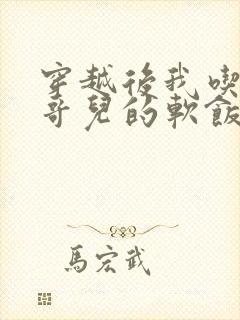 穿越後我喫
哥兒的軟飯
馬宏武